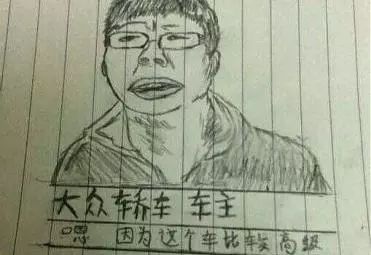 大众轿车 车主
嗯 因为这个车比较高级